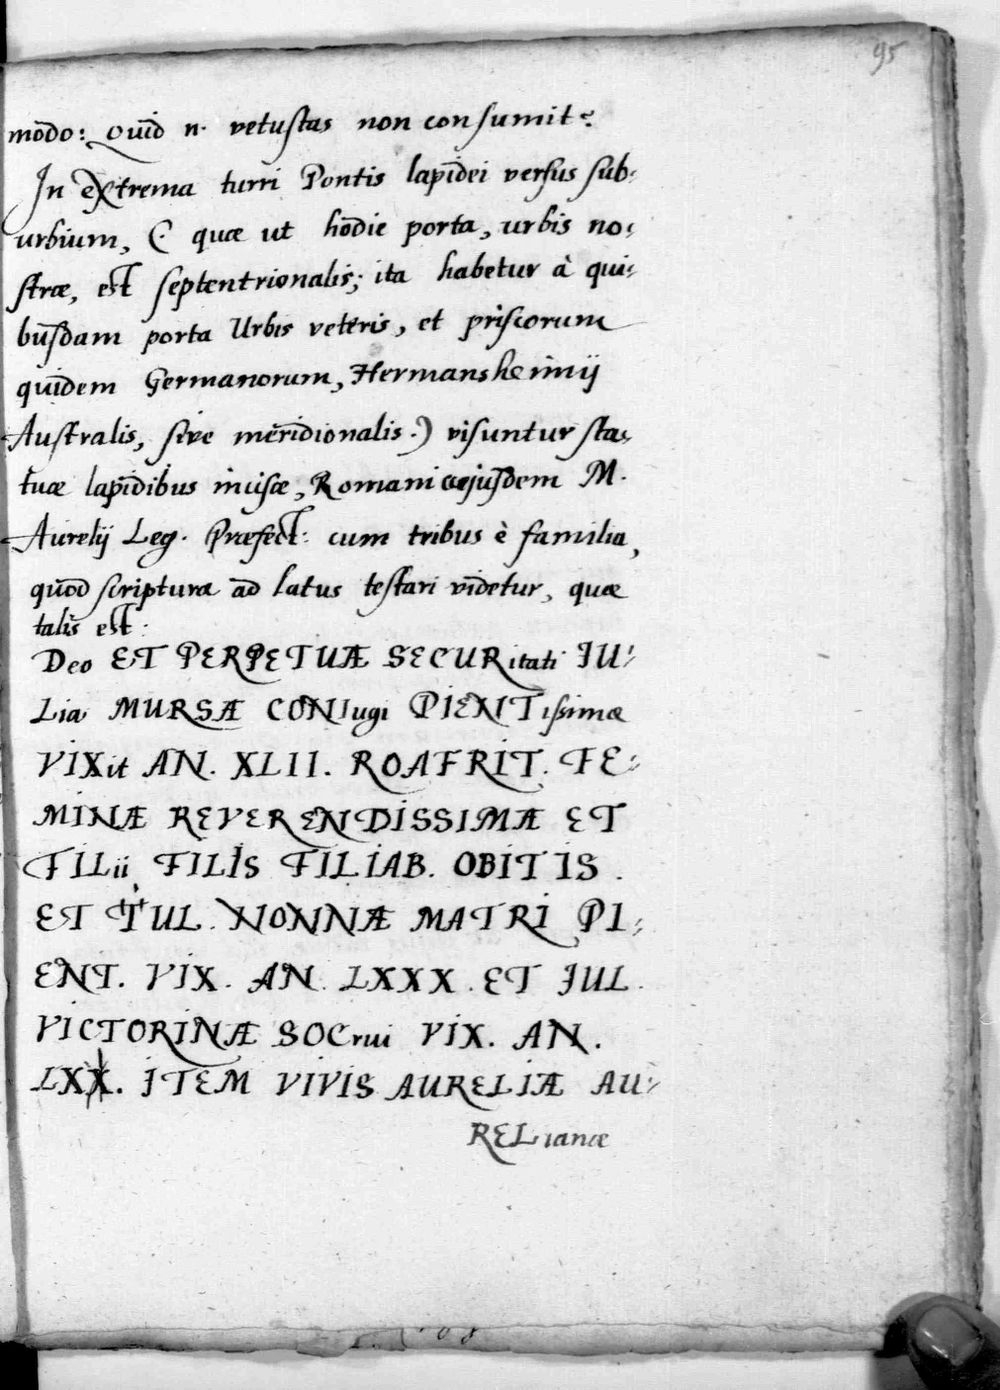 95
modo: Quid n. vetustas non consumit?
In extrema turri Pontis lapidei versus sub-
urbium, (: quæ ut hodie porta, urbis no-
stræ, est septentrionalis; ita habetur à qui-
busdam porta Urbis veteris, et priscorum
quidem Germanorum, Hermansheimij
Australis, sive meridionalis.) visuntur sta-
tuæ lapidibus incisæ, Romani cujusdem M.
Aurelij Leg. Præfect: cum tribus è familia,
quod scripturæ ad latus testari videtur, quæ
talis est:
Deo ET PERPETUÆ SECURitati JU-
Lia MURSÆ CONIugi PIENTissimæ
VIXit AN. XLII. ROAFRIT. FE-
MINÆ REVERENDISSIMÆ ET
FILii FILIS FILIAB. OBITIS.
ET JUL. NONNÆ MATRI PI-
ENT. VIX. AN. LXXX. ET JUL.
VICTORINÆ SOCrui VIX. AN.
LXX. ITEM VIVIS AURELIÆ AU-
RELianæ